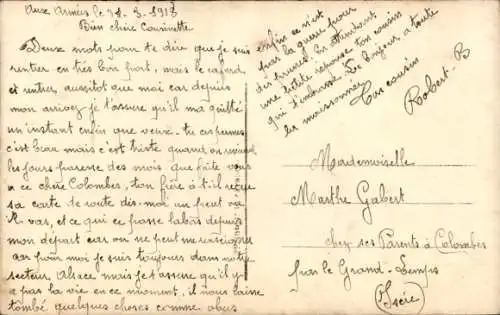 Aux Armées le 21-3-1918
Bien chère Cousinette
Deux mots pour te dire que je suis
rentrer en très bon port, mais le cafard
est rentrer, aussitôt que moi car depuis
mon arrivez je t'assure qu'il m'a quitté
un instant enfin que veux-tu ces permes
c'est beau mais c'est triste quand on revient
les jours passe des mois que faite vous
a ce chère Colombes, ton frère a t'il reçue
sa carte de route dis-moi un peut ou
il vas, et ce qui ce passe labas depuis
mon départ car on ne peut me renseigner
moi je suis toujours dans notre
secteur, Alsace mais je t'assure qu'il y
a pas la vie en ce moment, il nous laisse
tombé quelques choses comme obus
enfin ce n'est
pas la guerre pour
des prunes. En attendant
une petite réponse ton cousin
qui t'embrasse. Le bonjour a toute
la maisonnée
Ton cousin
Robert. B
Mademoiselle
Marthe Gabert
chez ses Parents à Colombes
par le Grand-Lemps
(Isère)